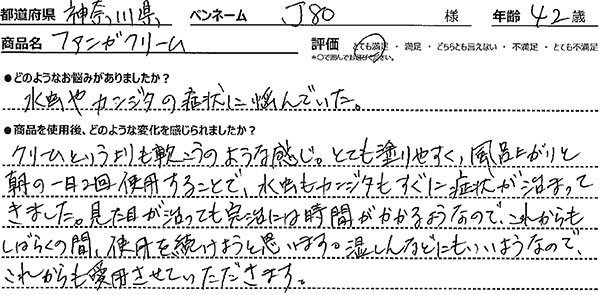 都道府県 神奈川県 ペンネーム J80 様 年齢 42歳
商品名 ファンガクリーム 評価 とても満足・満足・どちらとも言えない・不満足・とても不満足
*○で囲んでお答えください。
●どのようなお悩みがありましたか?
水虫やカンジタの症状に悩んでいた。
●商品を使用後、どのような変化を感じられましたか?
クリームというよりも軟こうのような感じ。とても塗りやすく、風呂上がりと
朝の一日2回使用することで、水虫もカンジタもすぐに症状が治まって
きました。見た目が治っても完治には時間がかかるようなので、これからも
しばらくの間、使用を続けようと思います。湿しんなどにもいいようなので、
これからも愛用させていただきます。